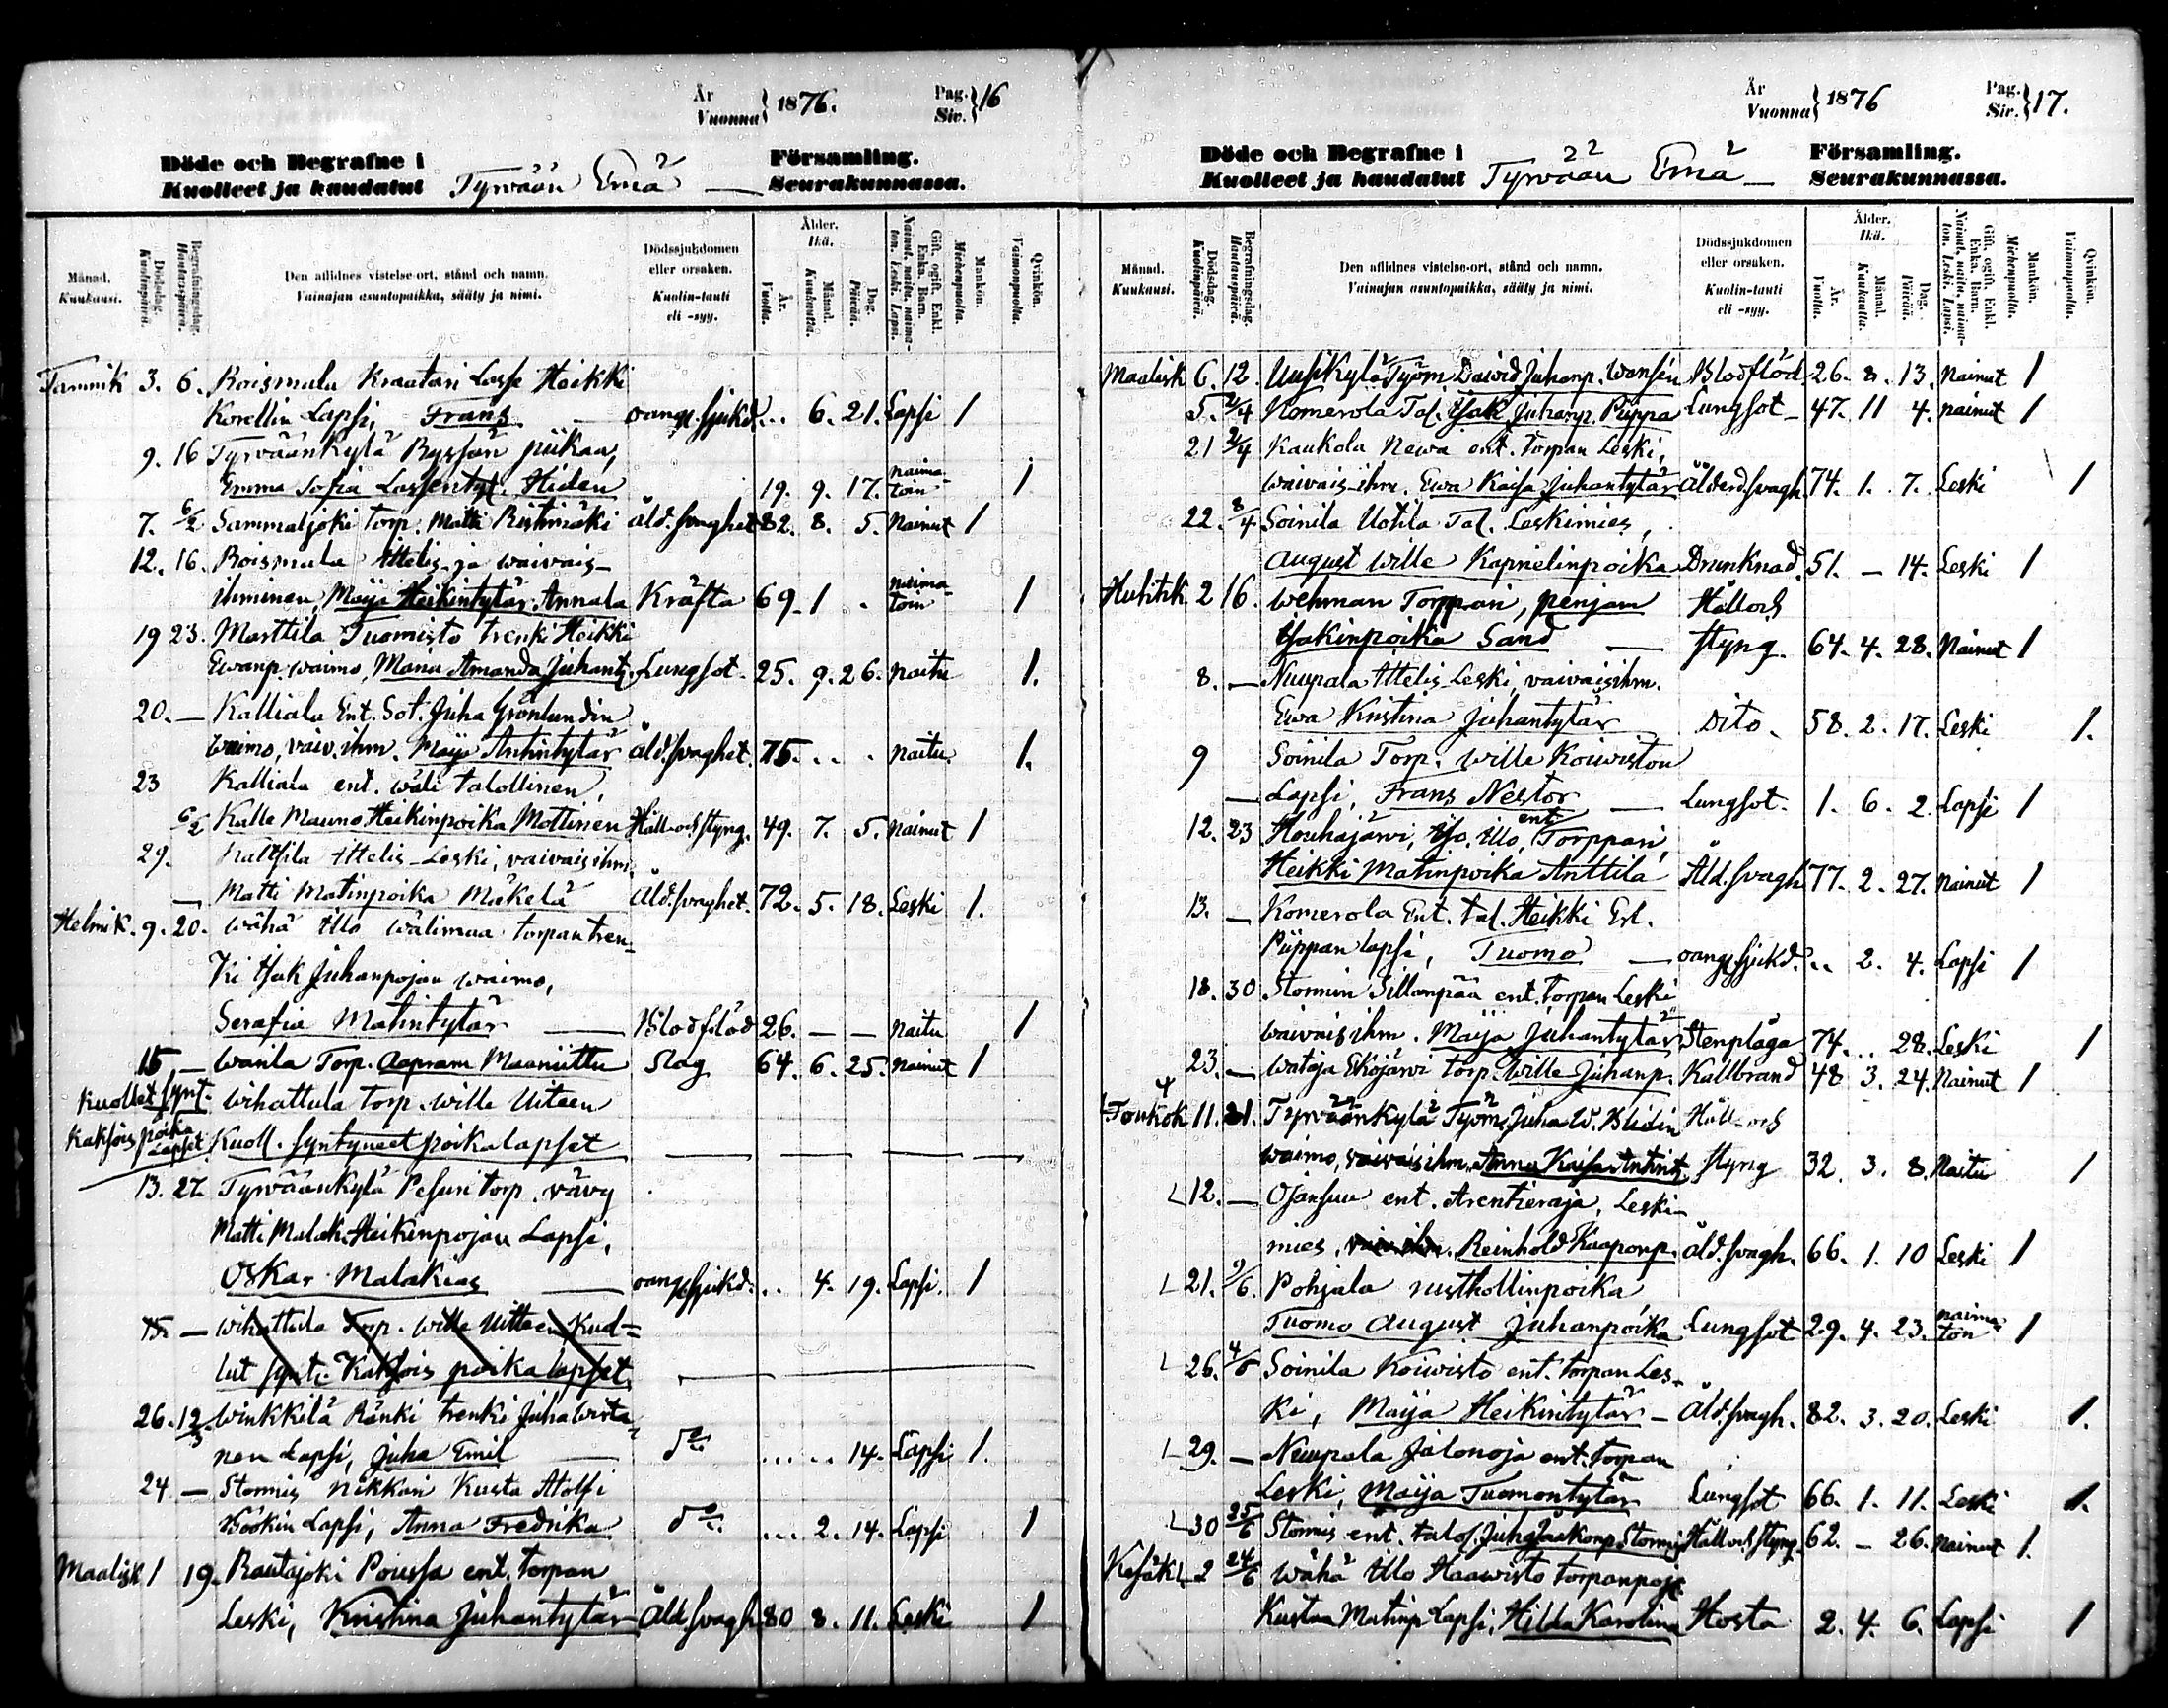 År
Vuonna } 1876.
Pag.
Siv. } 16
Döde och Begrafne i
Kuolleet ja haudatut Tyrvään Emä — Församling.
Seurakunnassa.
Månad.
Kuukausi.
Dödsdag.
Kuolinpäivä.
Begrafningsdag.
Hautauspäivä.
Den aflidnes vistelse-ort, stånd och namn.
Vainajan asuntopaikka, sääty ja nimi.
Dödssjukdomen
eller orsaken.
Kuolin-tauti
eli -syy.
Ålder.
Ikä.
År.
Vuotta.
Månad.
Kuukautta.
Dag.
Päivää.
Gift, ogift, Enkl.
Enka, Barn.
Nainut, naitu, naima-
ton, Leski, Lapsi.
Mankön.
Miehenpuolta.
Qvinkön.
Vaimonpuolta.
Tammik 3. 6. Roismala Kraatari Lasse Heikki
Korellin Lapsi, Frans — oangf. sjukd. .. 6. 21. Lapsi 1
9. 16 Tyrväänkylä Ryssän piikaa,
Emma Sofia Lassentyt. Hiden 19. 9. 17. naima-toin 1
7. 6/2 Sammaljoki torp. Matti Ristimäki åld. svaghet 82. 8. 5. Nainut 1
12. 16. Roismala Ittelis- ja waivais-
ihminen, Maija Heikintytär Annala Kräfta 69. 1 . naima-toin 1
19 23. Marttila Tuomisto trenki Heikki
Ewanp. waimo, Maria Amanda Juhant. Lungsot. 25. 9. 26. naitu 1.
20. — Kalliala Ent. Sot. Juha Grönlundin
waimo, vaiv. ihm. Maija Antintytär åld. svaghet. 75. .. . naitu 1.
23 Kalliala ent. wäli talollinen,
6/2 Kalle Mauno Heikinpoika Mottinen Håll och styng. 49. 7. 5. nainut 1
29. Ittelis-Leski, vaivaisihm.
— Matti Matinpoika Mäkelä Åld. svaghet. 72. 5. 18. Leski 1.
Helmik. 9. 20. Wähä Illo Wälimaa torpan tren-
ki Isak Juhanpojan waimo,
Serafia Matintytär — Blodflöd 26. — — naitu 1
15 — Warila Torp. Aapram Maaniittu Slag 64. 6. 25. nainut 1
Kuollet synt. Wihattula torp. Wille Uiteen
Kaksois poika Lapset Kuoll. syntyneet poikalapset — — — — —
13. 27. Tyrväänkylä Pesuri torp. vävy
Matti Malak. Heikinpojan Lapsi,
Oskar Malakias — oangf. sjukd. .. 4. 19. Lapsi. 1
15. — Wihattula Torp. Wille Uitteen Kuol-
lut synt. Kaksois poikalapset
26. 12/3 Winkkilä Ränki trenki Juha Wirta-
nen Lapsi, Juha Emil — do .. .. 14. Lapsi 1.
24. — Stormis Nikkari Kusta Atolfi
Böökin Lapsi, Anna Fredrika do .. 2. 14. Lapsi 1
Maalisk 1 19. Rautajoki Poussa ent. torpan
Leski, Kristina Juhantytär Åld. svagh. 80 8. 11. Leski 1
År
Vuonna } 1876
Pag.
Siv. } 17.
Döde och Begrafne i
Kuolleet ja haudatut Tyrvään Emä — Församling.
Seurakunnassa.
Månad.
Kuukausi.
Dödsdag.
Kuolinpäivä.
Begrafningsdag.
Hautauspäivä.
Den aflidnes vistelse-ort, stånd och namn.
Vainajan asuntopaikka, sääty ja nimi.
Dödssjukdomen
eller orsaken.
Kuolin-tauti
eli -syy.
Ålder.
Ikä.
År.
Vuotta.
Månad.
Kuukautta.
Dag.
Päivää.
Gift, ogift, Enkl.
Enka, Barn.
Nainut, naitu, naima-
ton, Leski, Lapsi.
Mankön.
Miehenpuolta.
Qvinkön.
Vaimonpuolta.
Maalisk 6. 12. Uusikylä Työm Dawid Juhanp. Wansén Blodflöd 26. 8. 13. Nainut 1
5. 2/4 Komerola Tal. Isak Juhanp. Piippa Lungsot — 47. 11 4. nainut 1
21 2/4 Kaukola Newa ent. torpan Leski,
waivais-ihm. Ewa Kaisa Juhantytär Ålderd. svagh. 74. 1. 7. Leski 1
22. 8/4 Soinila Uotila Tal. Leskimies,
August Wille Kapnelinpoika Drunknad. 51. — 14. Leski 1
Huhtik 2 16. Wehman Torppari, Penjam Håll och
Isakinpoika Sand — styng. 64. 4. 28. Nainut 1
8. — Nuupala Ittelis Leski, vaivaisihm.
Ewa Kristina Juhantytär Dito. 58. 2. 17. Leski 1.
9 Soinila Torp. Wille Koiwiston
— Lapsi, Frans Nestor — Lungsot. 1. 6. 2. Lapsi 1
12. 23 Houhajärvi, Iso Illo, ent. Torppari,
Heikki Matinpoika Anttila Åld. svagh 77. 2. 27. nainut 1
13. — Komerola Ent. tal. Heikki Erl.
Piippan lapsi, Tuomo — oangf. sjukd. .. 2. 4. Lapsi 1
18. 30 Stormin Sillanpää ent. torpan Leski
waivaisihm. Maija Juhantytär Stenplåga 74. .. 28. Leski 1
23. — Wataja Ekojärvi torp. Wille Juhanp. Kallbrand 48 3. 24. Nainut 1
Toukok 11. 21. Tyrväänkylä Työm. Juha W. Blidin Håll och
waimo, vaivaisihm. Anna Kaisa Antint. styng 32. 3. 8. Naitu 1
12. — Ojansuu ent. Arentieraja, Leski-
mies, Reinhold Kaaponp. åld. svagh. 66. 1. 10 Leski 1
21. 9/6. Pohjala rusthollinpoika
Tuomo August Juhanpoika Lungsot 29. 4. 23. naima-ton 1
26. 4/6 Soinila Koiwisto ent. torpan Les-
ki, Maija Heikintytär — Åld. svagh. 82. 3. 20. Leski 1.
29. — Nuupala Jalonoja ent. torpan
Leski, Maija Tuomontytär Lungsot 66. 1. 11. Leski 1.
30 25/6 Stormis ent. talol. Juha Jaakonp Stormi Håll och styng. 62. — 26. nainut 1.
Kesäk 2 24/6 Wähä Illo Haawisto torpanpoja
Kustaa Matinp Lapsi, Hilda Karolina Hosta 2. 4. 6. Lapsi 1